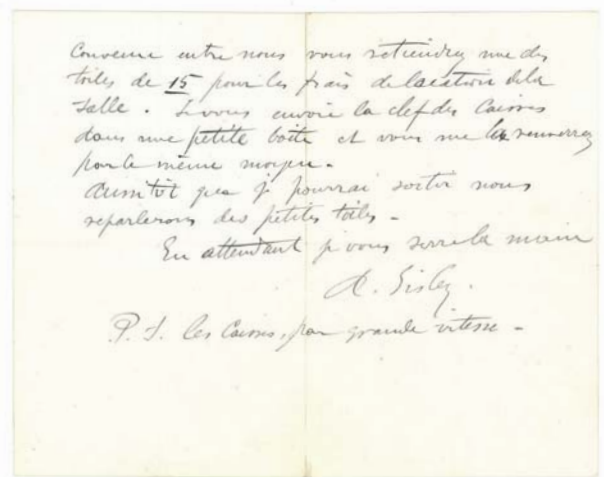 convenu entre nous vous retiendrez une des
toiles de 15 pour les frais de location de la
Salle. Je vous envoie la clef des Caisses
dans une petite boite et vous me la renverrez
par le même moyen.
Aussitot que je pourrai sortir nous
reparlerons des petites toiles.
En attendant je vous serre la main
A. Sisley.
P.S. les Caisses, par grande vitesse.